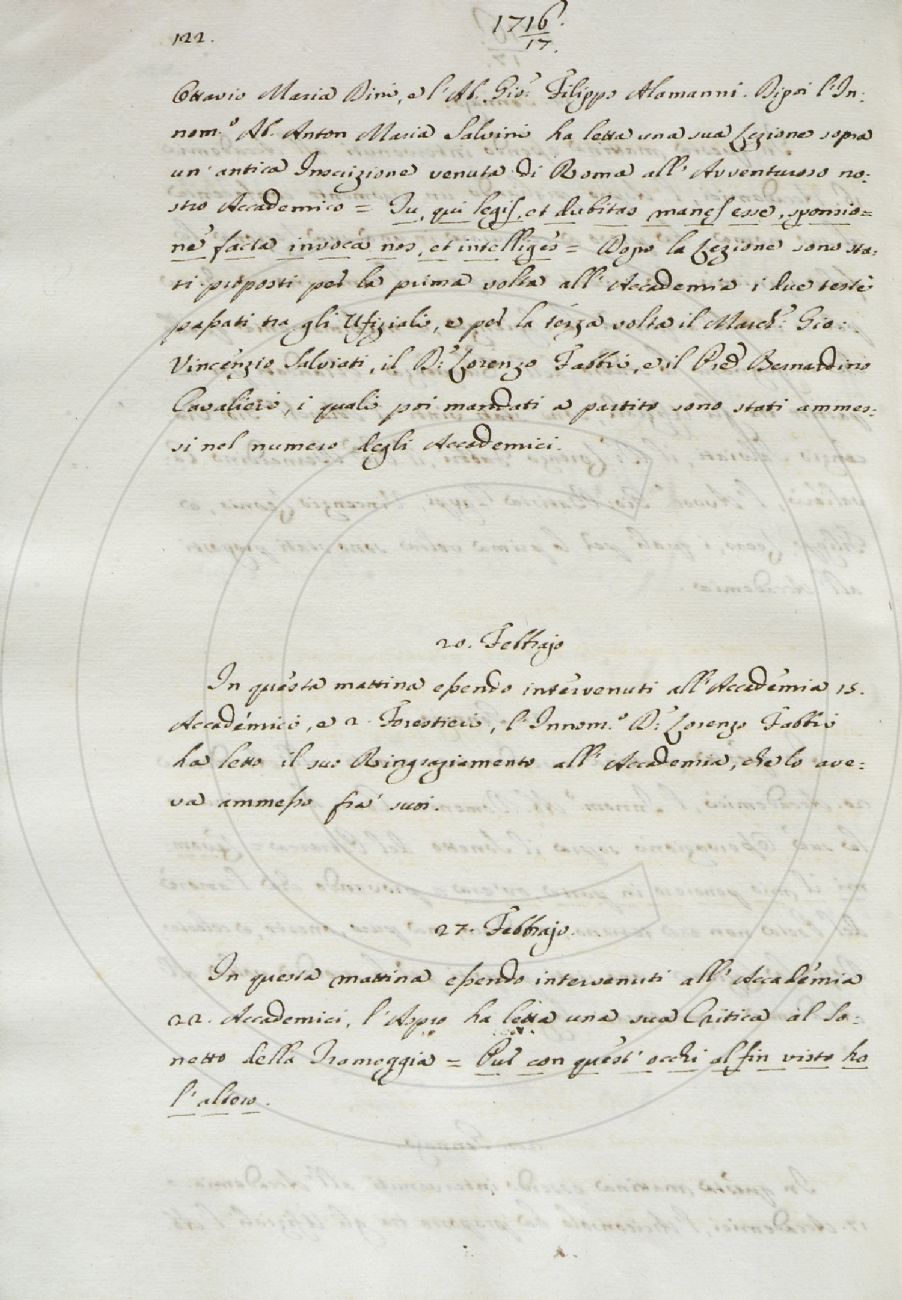 122.
1716/17.
Ottavio Maria Dini, e l'Ab. Gio: Filippo Alamanni. Dipoi l'In:
nom.º Ab. Anton Maria Salvini ha letta una sua Lezione sopra
un' antica Inscizione venuta di Roma all' Avventuroso no:
stro Accademico = Tu, qui legis, et dubitas manes esse, sponsio=
ne facta invoca nos, et intelliges = Dopo la Lezione sono sta:
ti proposti per la prima volta all' Accademia i due teste
passati tra gli Ufiziali, e per la terza volta il March. Gio:
Vincenzio Salviati, il D.r Lorenzo Fabbri, e il Pre Bernardino
Cavalieri, i quali poi mandati a partito sono stati ammes:
si nel numero degli Accademici.
20. Febbrajo
In questa mattina essendo intervenuti all' Accademia 15.
Accademici, e 2. Forestieri, l'Innom.º D.r Lorenzo Fabbri
ha letto il suo Ringraziamento all' Accademia, che lo ave:
va ammesso fra' suoi.
27. Febbrajo.
In questa mattina essendo intervenuti all' Accademia
22. Accademici, l'Apro ha letta una sua Critica al So:
netto della Trameggia = Pur con quest' occhi al fin visto ho
l'altero.